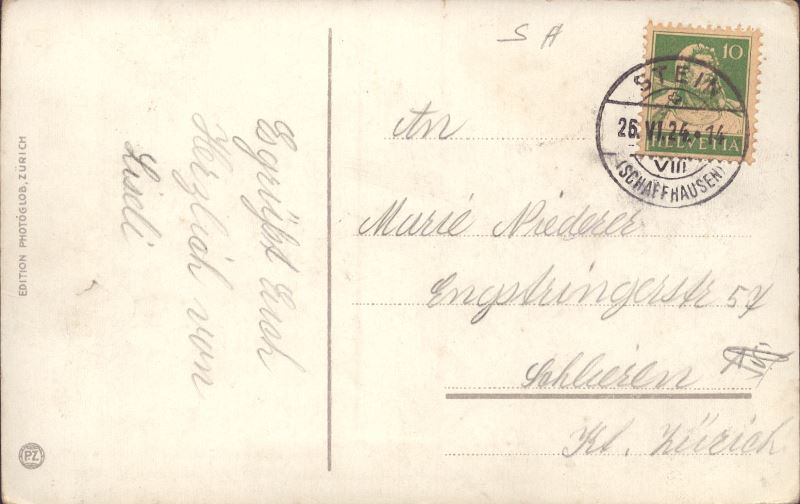 S A
10
HELVETIA
STEIN
26.VI.24.14
VIII
(SCHAFFHAUSEN)
An
Marie Niederer
Engstringerstr 57
Schlieren
Kt. Zürich
Es grüßt Euch
Herzlich von
Liseli
EDITION PHOTOGLOB, ZÜRICH
PZ